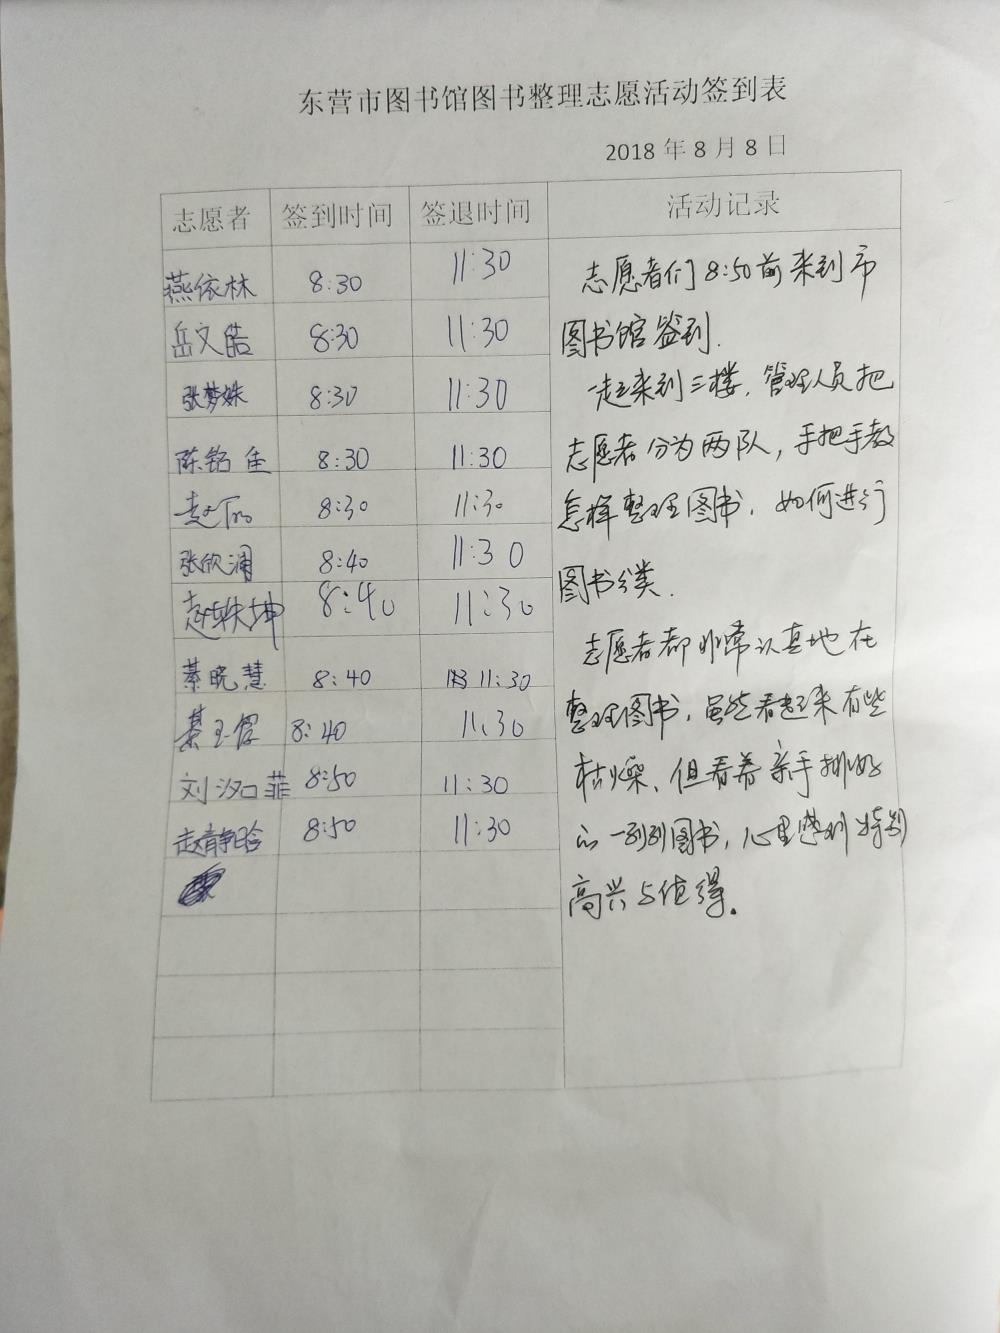 东营市图书馆图书整理志愿活动签到表
2018 年 8 月 8 日
志愿者 签到时间 签退时间 活动记录
燕依林 8:30 11:30
岳文皓 8:30 11:30
张梦姝 8:30 11:30
陈铭佳 8:30 11:30
8:30 11:30
张欣澜 8:40 11:30
赵轶坤 8:40 11:30
綦晓慧 8:40 11:30
綦玉 8:40 11:30
刘汐菲 8:50 11:30
赵静晗 8:50 11:30
志愿者们8:50前来到市
图书馆签到.
一起来到三楼,管理人员把
志愿者分为两队,手把手教
怎样整理图书,如何进行
图书分类.
志愿者都非常认真地在
整理图书,虽然看起来有些
枯燥,但看着亲手排好
的一列列图书,心里感到特别
高兴与值得.